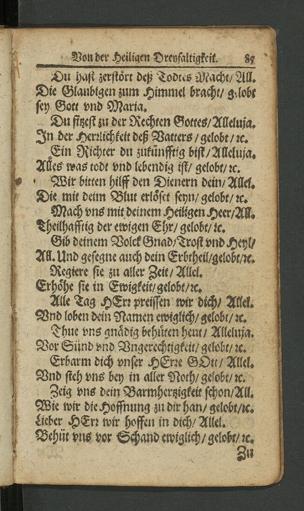 Von der Heiligen Dreyfaltigkeit. 85
Du hast zerstört deß Todtes Macht/ All.
Die Glaubigen zum Himmel bracht/ gelobt
sey Gott vnd Maria.
Du sitzest zu der Rechten Gottes/ Alleluja.
In der Herrlichkeit deß Vatters/ gelobt/ ꝛc.
Ein Richter du zukünfftig bist/ Alleluja.
Alles was todt vnd lebendig ist/ gelobt/ ꝛc.
Wir bitten hilff den Dienern dein/ Allel.
Die mit deim Blut erlöset seyn/ gelobt/ ꝛc.
Mach vns mit deinem Heiligen Heer/ All.
Theilhafftig der ewigen Ehr/ gelobt/ ꝛc.
Gib deinem Volck Gnad/ Trost vnd Heyl/
All. Und gesegne auch dein Erbtheil/ gelobt/ ꝛc.
Regiere sie zu aller Zeit/ Allel.
Erhöhe sie in Ewigkeit/ gelobt/ ꝛc.
Alle Tag HErr preissen wir dich/ Allel.
Vnd loben dein Namen ewiglich/ gelobt/ ꝛc.
Thue vns gnädig behüten heut/ Alleluja.
Vor Sünd vnd Vngerechtigkeit/ gelobt/ ꝛc.
Erbarm dich vnser HErre GOtt/ Allel.
Vnd steh vns bey in aller Noth/ gelobt/ ꝛc.
Zeig vns dein Barmhertzigkeit schon/ All.
Wie wir die Hoffnung zu dir han/ gelobt/ ꝛc.
Lieber HErr wir hoffen in dich/ Allel.
Behüt vns vor Schand ewiglich/ gelobt/ ꝛc.
Zu